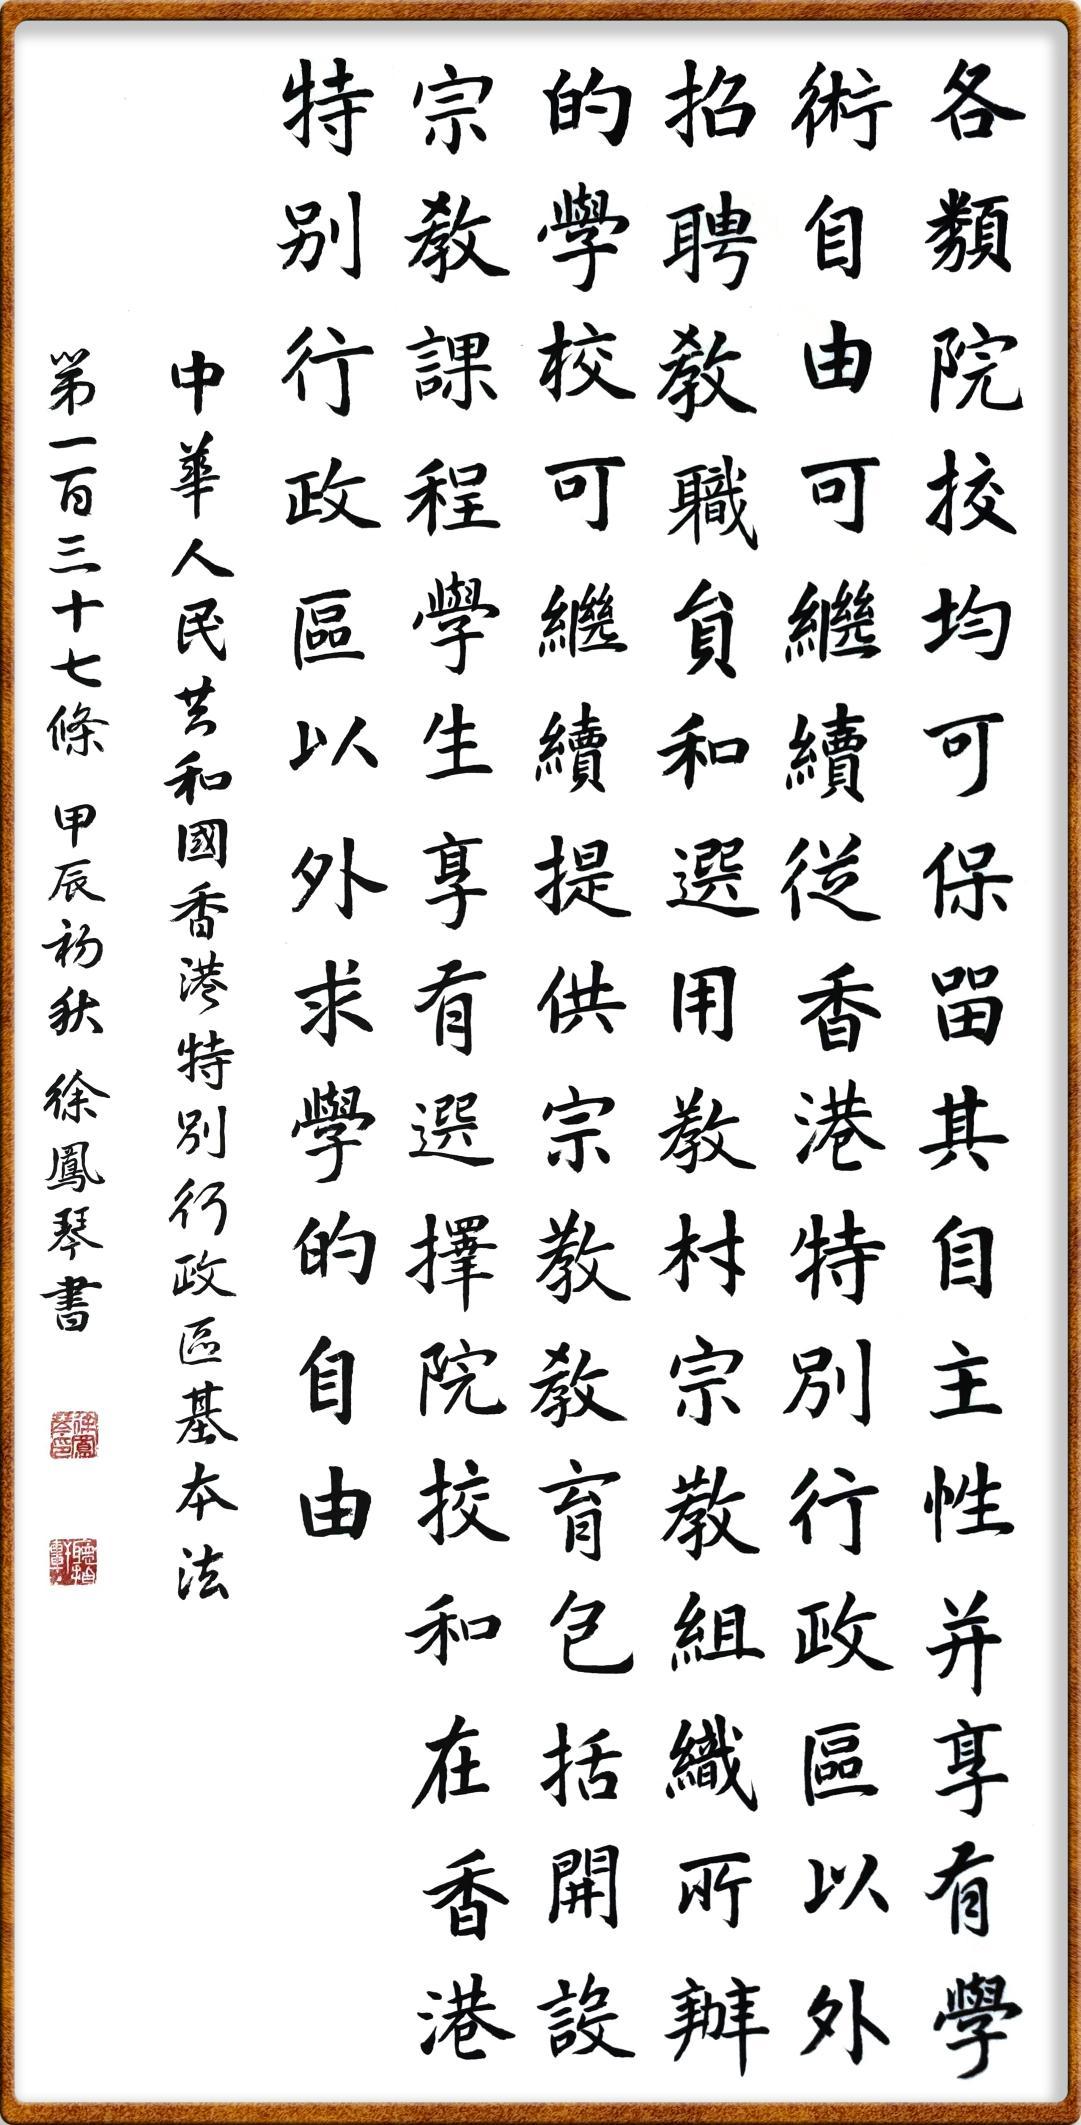 各類院校均可保留其自主性并享有學
術自由可繼續從香港特別行政區以外
招聘教職員和選用教材宗教組織所辦
的學校可繼續提供宗教教育包括開設
宗教課程學生享有選擇院校和在香港
特别行政區以外求學的自由
中華人民共和國香港特別行政區基本法
第一百三十七條 甲辰初秋 徐鳳琴書
徐鳳琴印